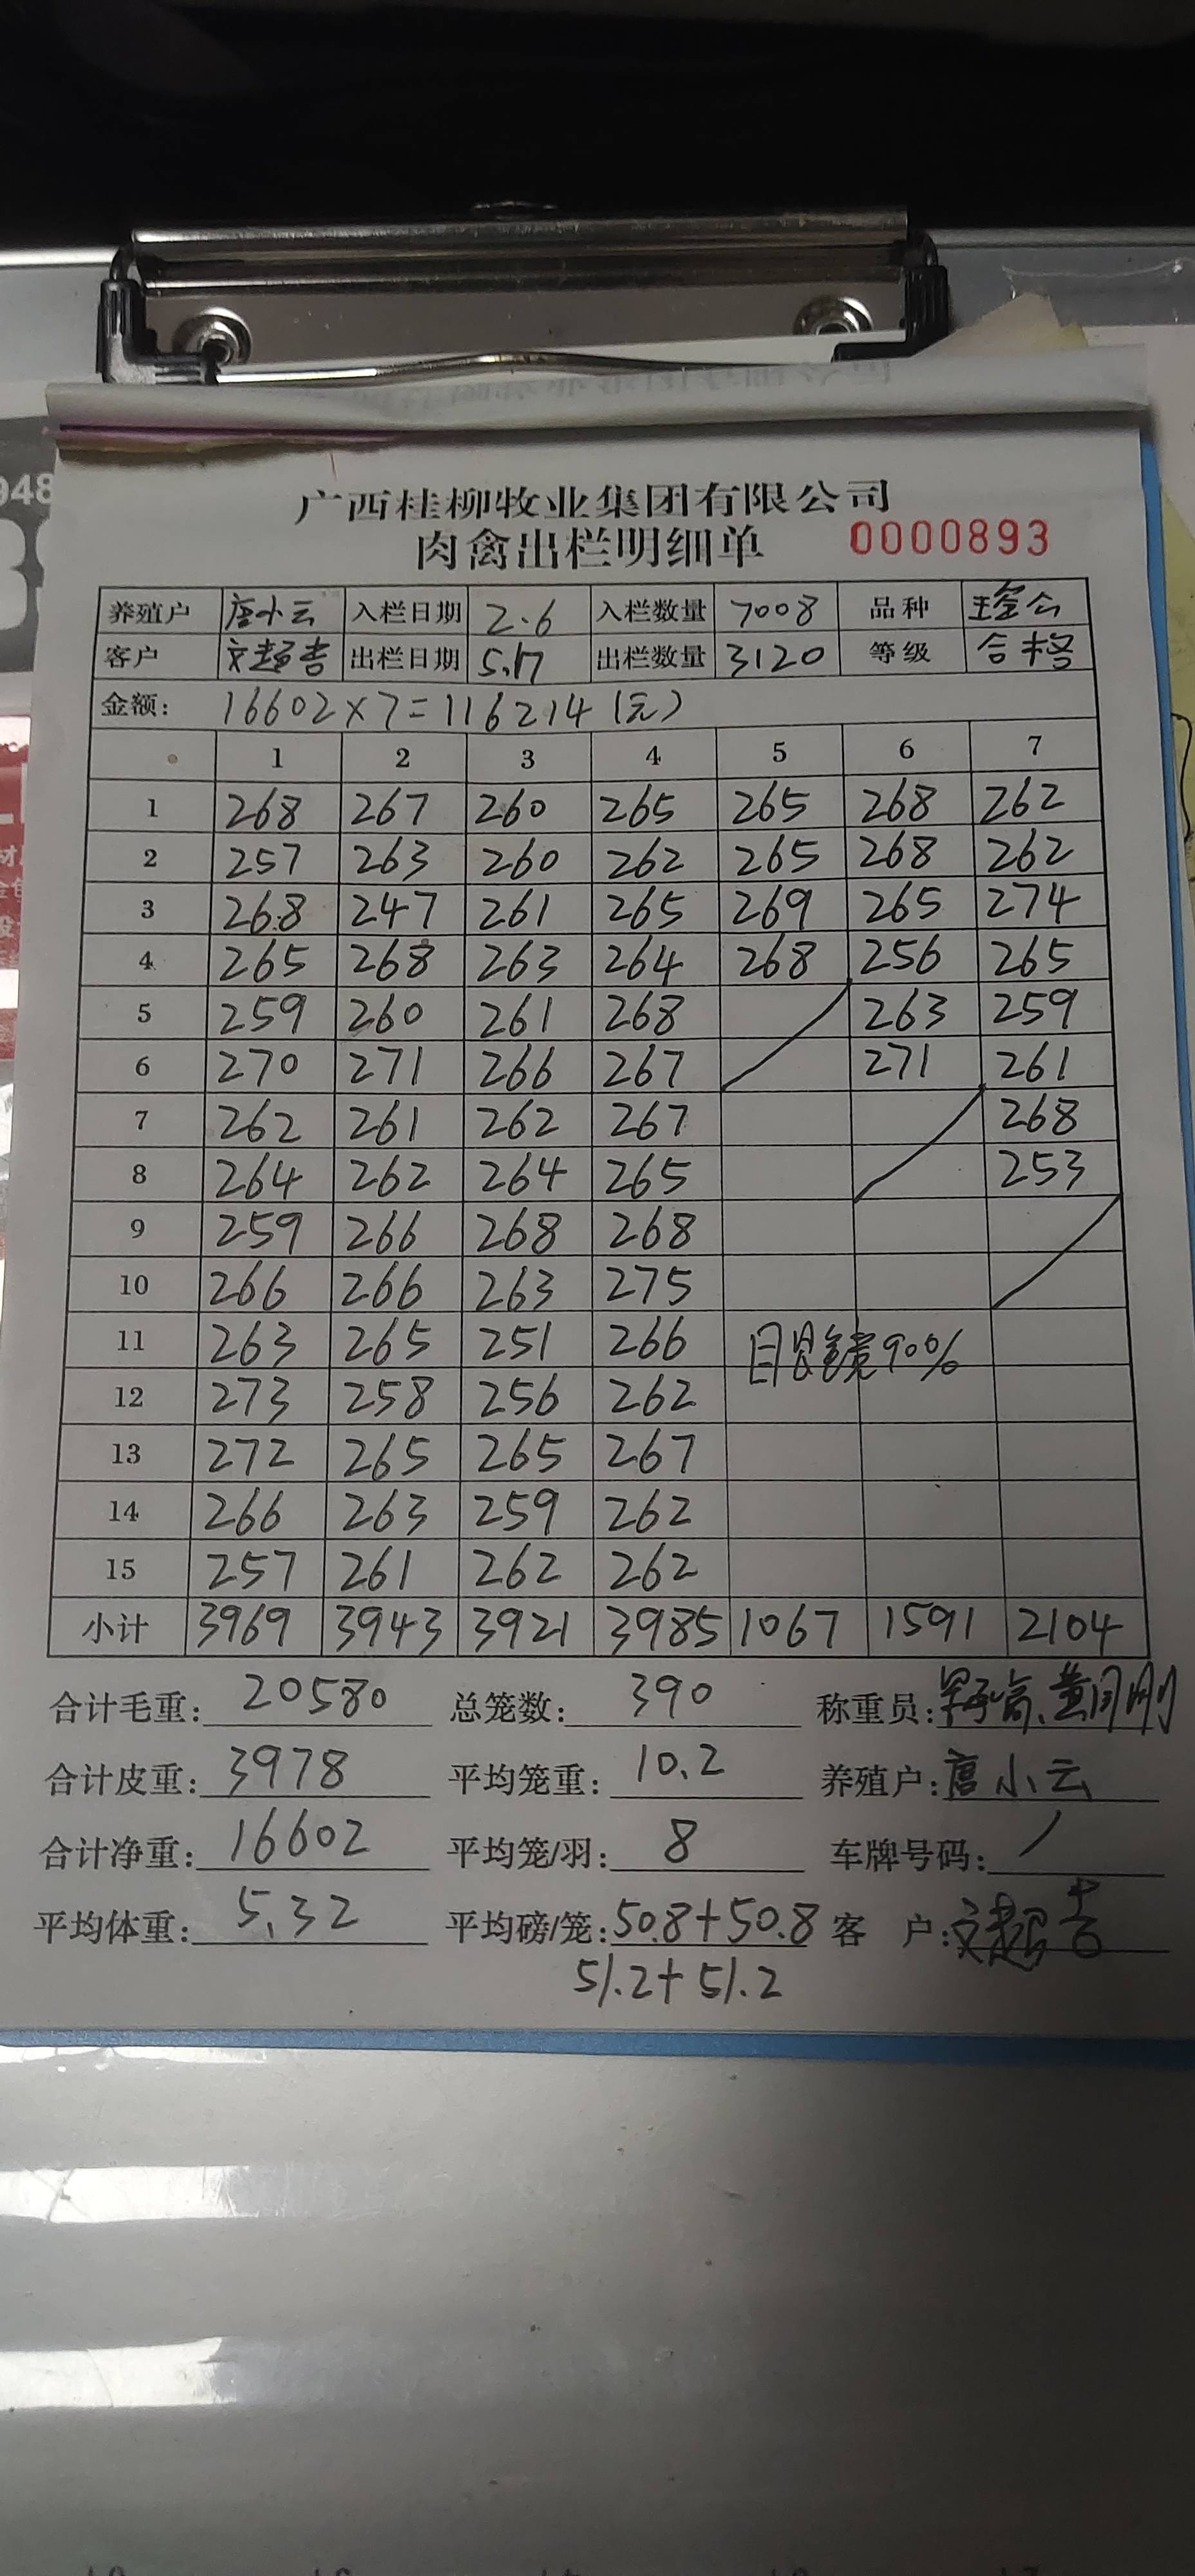 广西桂柳牧业集团有限公司
肉禽出栏明细单 0000893
养殖户 唐小云 入栏日期 2.6 入栏数量 7008 品种
客户 文超吉 出栏日期 5.17 出栏数量 3120 等级 合格
金额: 16602×7=116214(元)
1 2 3 4 5 6 7
1 268 267 260 265 265 268 262
2 257 263 260 262 265 268 262
3 268 247 261 265 269 265 274
4 265 268 263 264 268 256 265
5 259 260 261 268 263 259
6 270 271 266 267 271 261
7 262 261 262 267 268
8 264 262 264 265 253
9 259 266 268 268
10 266 266 263 275
11 263 265 251 266 90%
12 273 258 256 262
13 272 265 265 267
14 266 263 259 262
15 257 261 262 262
小计 3969 3943 3921 3985 1067 1591 2104
合计毛重: 20580 总笼数: 390 称重员:
合计皮重: 3978 平均笼重: 10.2 养殖户: 唐小云
合计净重: 16602 平均笼/羽: 8 车牌号码: /
平均体重: 5.32 平均磅/笼: 50.8+50.8 客户: 文超吉
51.2+51.2
948